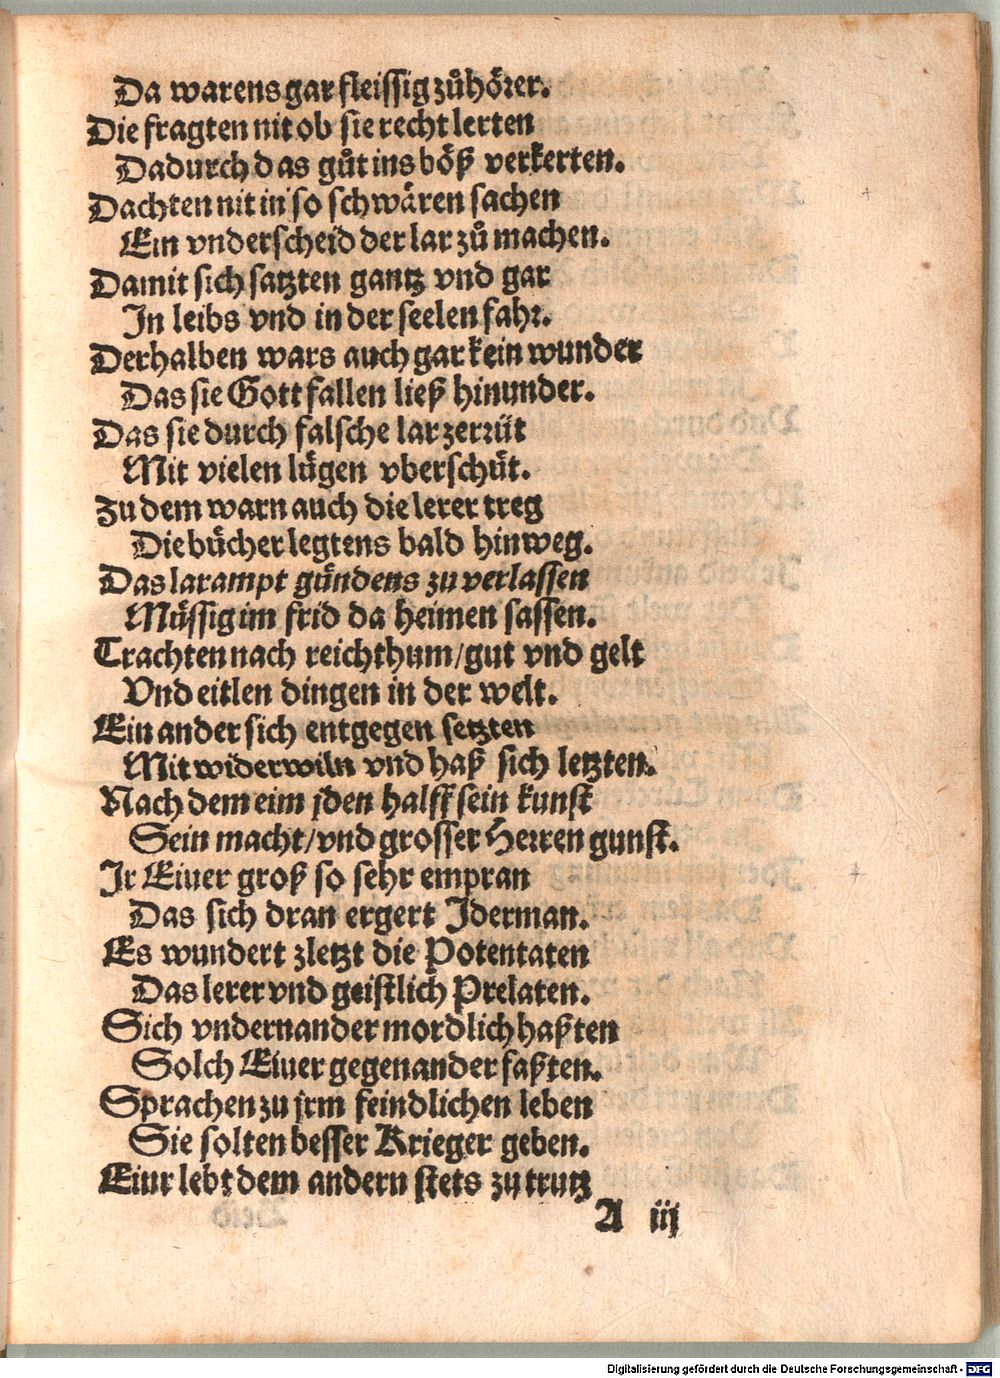 Da warens gar fleissig zůhörer.
Die fragten nit ob sie recht lerten
Dadurch das gůt ins böß verkerten.
Dachten nit in so schwären sachen
Ein vnderscheid der lar zů machen.
Damit sich satzten gantz vnd gar
In leibs vnd in der seelen fahr.
Derhalben wars auch gar kein wunder
Das sie Gott fallen ließ hinunder.
Das sie durch falsche lar zerrüt
Mit vielen lügen vberschüt.
Zu dem warn auch die lerer treg
Die bücher legtens bald hinweg.
Das larampt gündens zu verlassen
Müssig im frid da heimen sassen.
Trachten nach reichthum/gut vnd gelt
Vnd eitlen dingen in der welt.
Ein ander sich entgegen setzten
Mit widerwiln vnd haß sich letzten.
Nach dem eim jden halff sein kunst
Sein macht/vnd grosser Herren gunst.
Jr Eiuer groß so sehr empran
Das sich dran ergert Jderman.
Es wundert zletzt die Potentaten
Das lerer vnd geistlich Prelaten.
Sich vndernander mordlich haßten
Solch Eiuer gegenander faßten.
Sprachen zu jrm feindlichen leben
Sie solten besser Krieger geben.
Einr lebt dem andern stets zu trutz
A iij
Digitalisierung gefördert durch die Deutsche Forschungsgemeinschaft - DFG